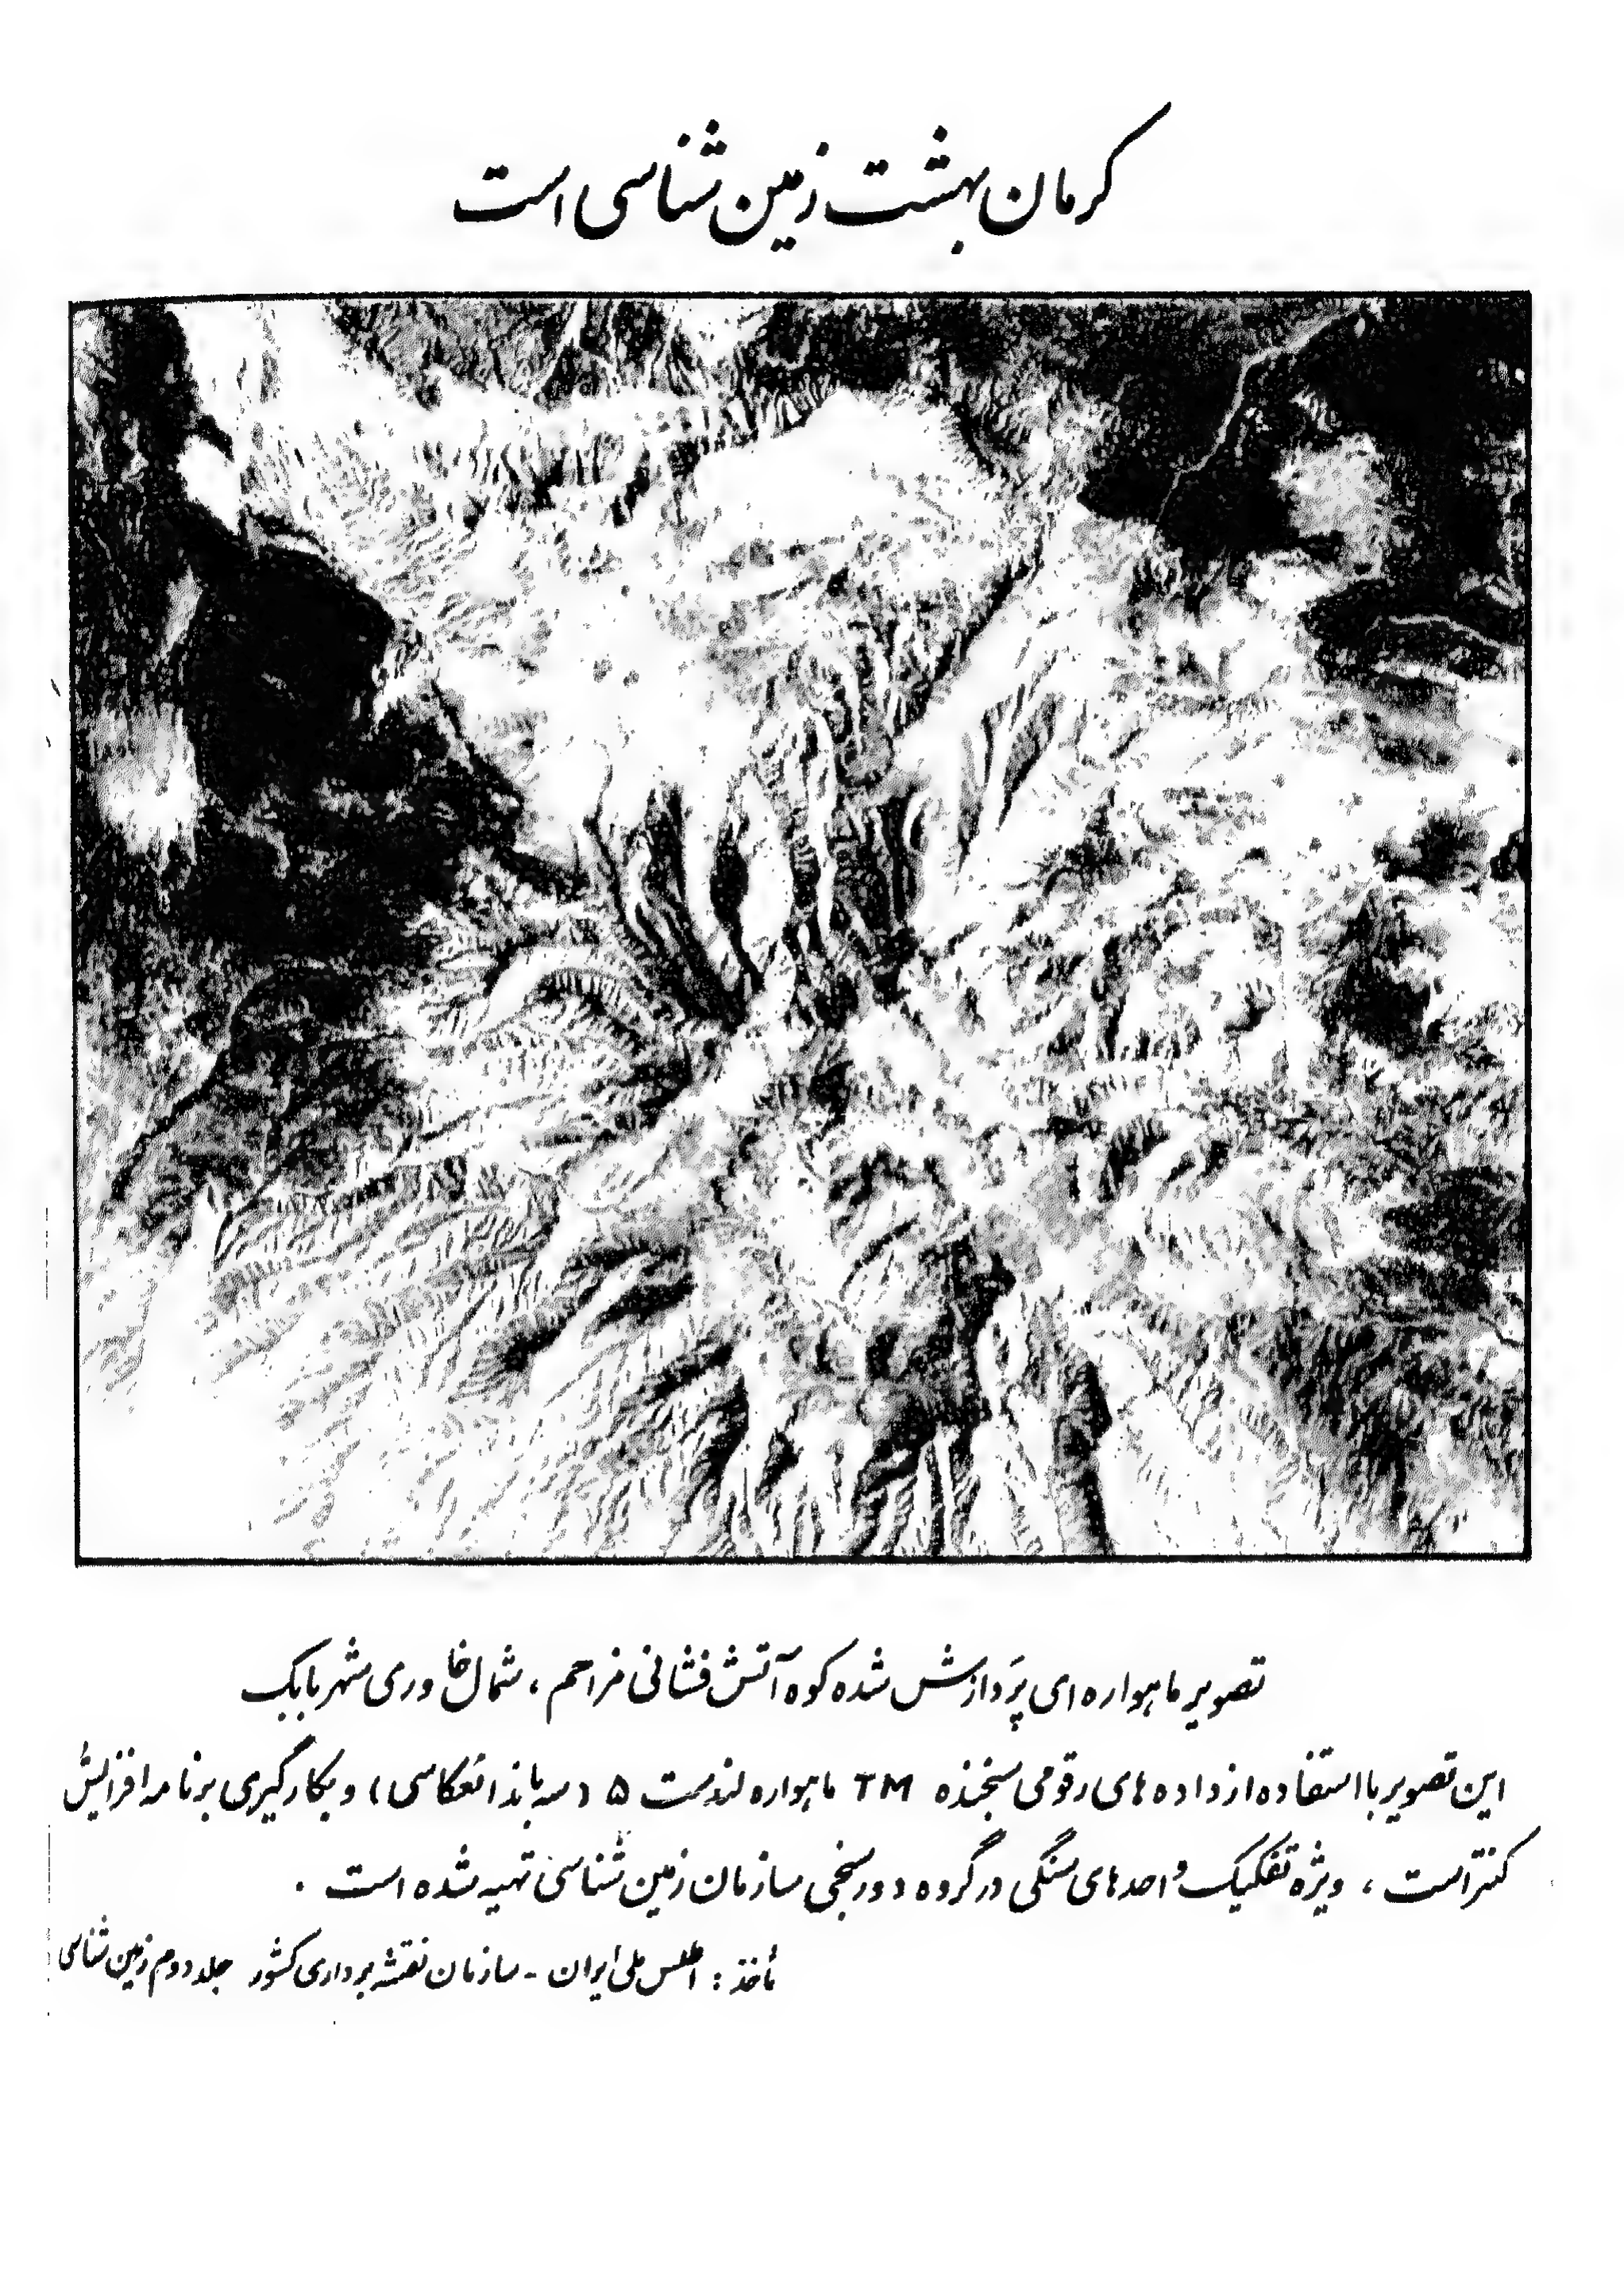 کرمان بهشت زمین شناسی است
تصویر ماهواره ای پردازش شده کوه آتش فشانی مزاحم ، شمال خاوری شهر بابک
این تصویر با استفاده از داده های رقومی سنجنده TM ماهواره لندست ۵ (سه باند انعکاسی) و بکارگیری برنامه افزایش
کنتراست ، ویژه تفکیک واحدهای سنگی در گروه دورسنجی سازمان زمین شناسی تهیه شده است .
مأخذ : اطلس ملی ایران - سازمان نقشه برداری کشور جلد دوم زمین شناسی